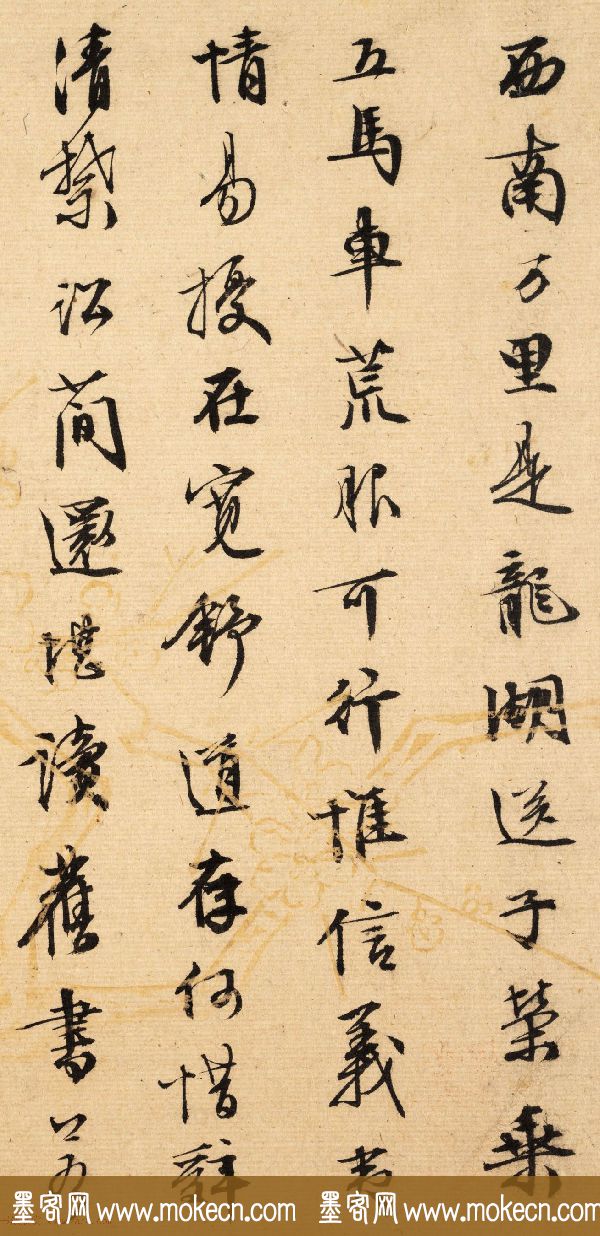 西南万里是龍湖送子榮乘
五馬車荒服可行惟信義
情易擾在寬舒道存何惜辭
清禁訟簡還堪讀舊書
墨客网 www.mokecn.com 墨客网 www.mokecn.com